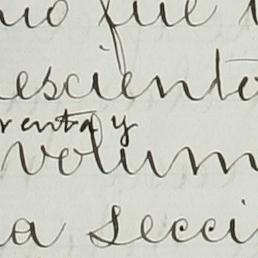 io fue
esciento
renta y
volum
a secci